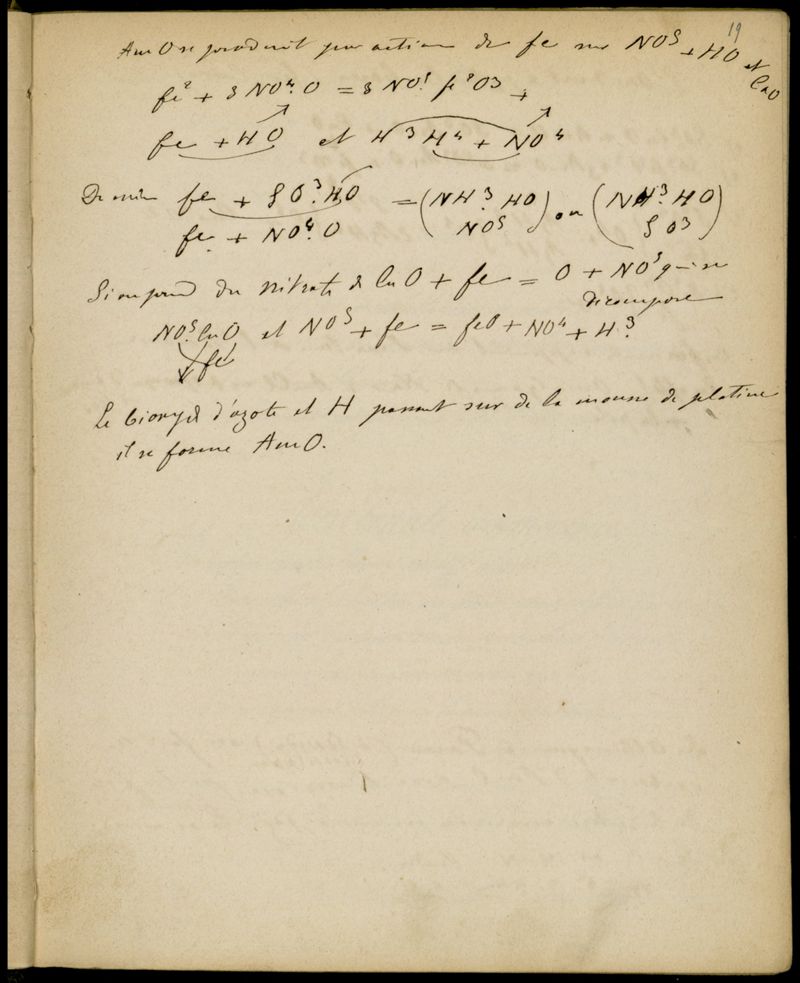 19
AmO se produit par action de fe sur NO⁵ + HO et CaO
fe² + 3 NO⁴.O = 3 NO⁵ fe²O3 +
fe + HO et H³ H⁴ + NO⁴
De même fe + SO³.HO = (NH³.HO NO⁵) ou (NH³.HO SO³)
fe + NO⁴.O
Si on prend du nitrate de CuO + fe = O + NO⁵ qui se
décompose
NO⁵.CuO et NO⁵ + fe = feO + NO⁴ + H³.
fe
Le bioxyde d'azote et H passant sur de la mousse de platine
il se forme AmO.